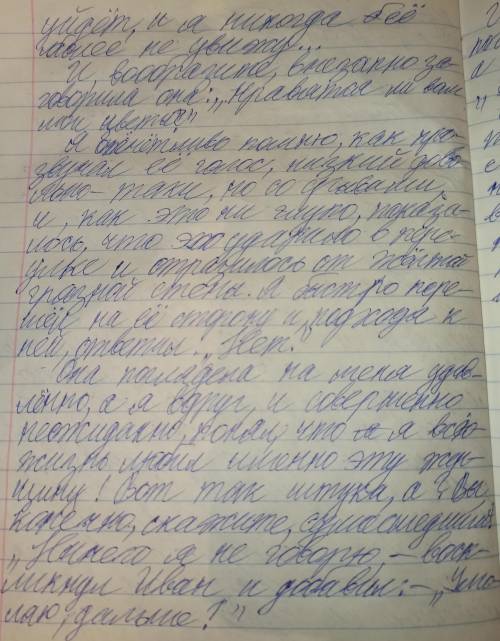 уйдёт, и я никогда её
более не увижу...
И, вообразите, внезапно за-
говорила она: „Нравятся ли вам
мои цветы?"
Я отчётливо помню, как про-
звучал её голос, низкий дово-
льно-таки, но со срывами,
и, как это ни глупо, показа-
лось, что эхо ударило в пере-
улке и отразилось от жёлтой
грязной стены. Я быстро пере-
шёл на её сторону и, подходя к
ней, ответил: „Нет."
Она поглядела на меня удив-
лённо, а я вдруг, и совершенно
неожиданно, понял, что я всю
жизнь любил именно эту жен-
щину! Вот так штука, а? Вы,
конечно, скажите, сумасшедший?
„Ничего я не говорю, – воск-
ликнул Иван и добавил: – „Умо-
ляю, дальше!"